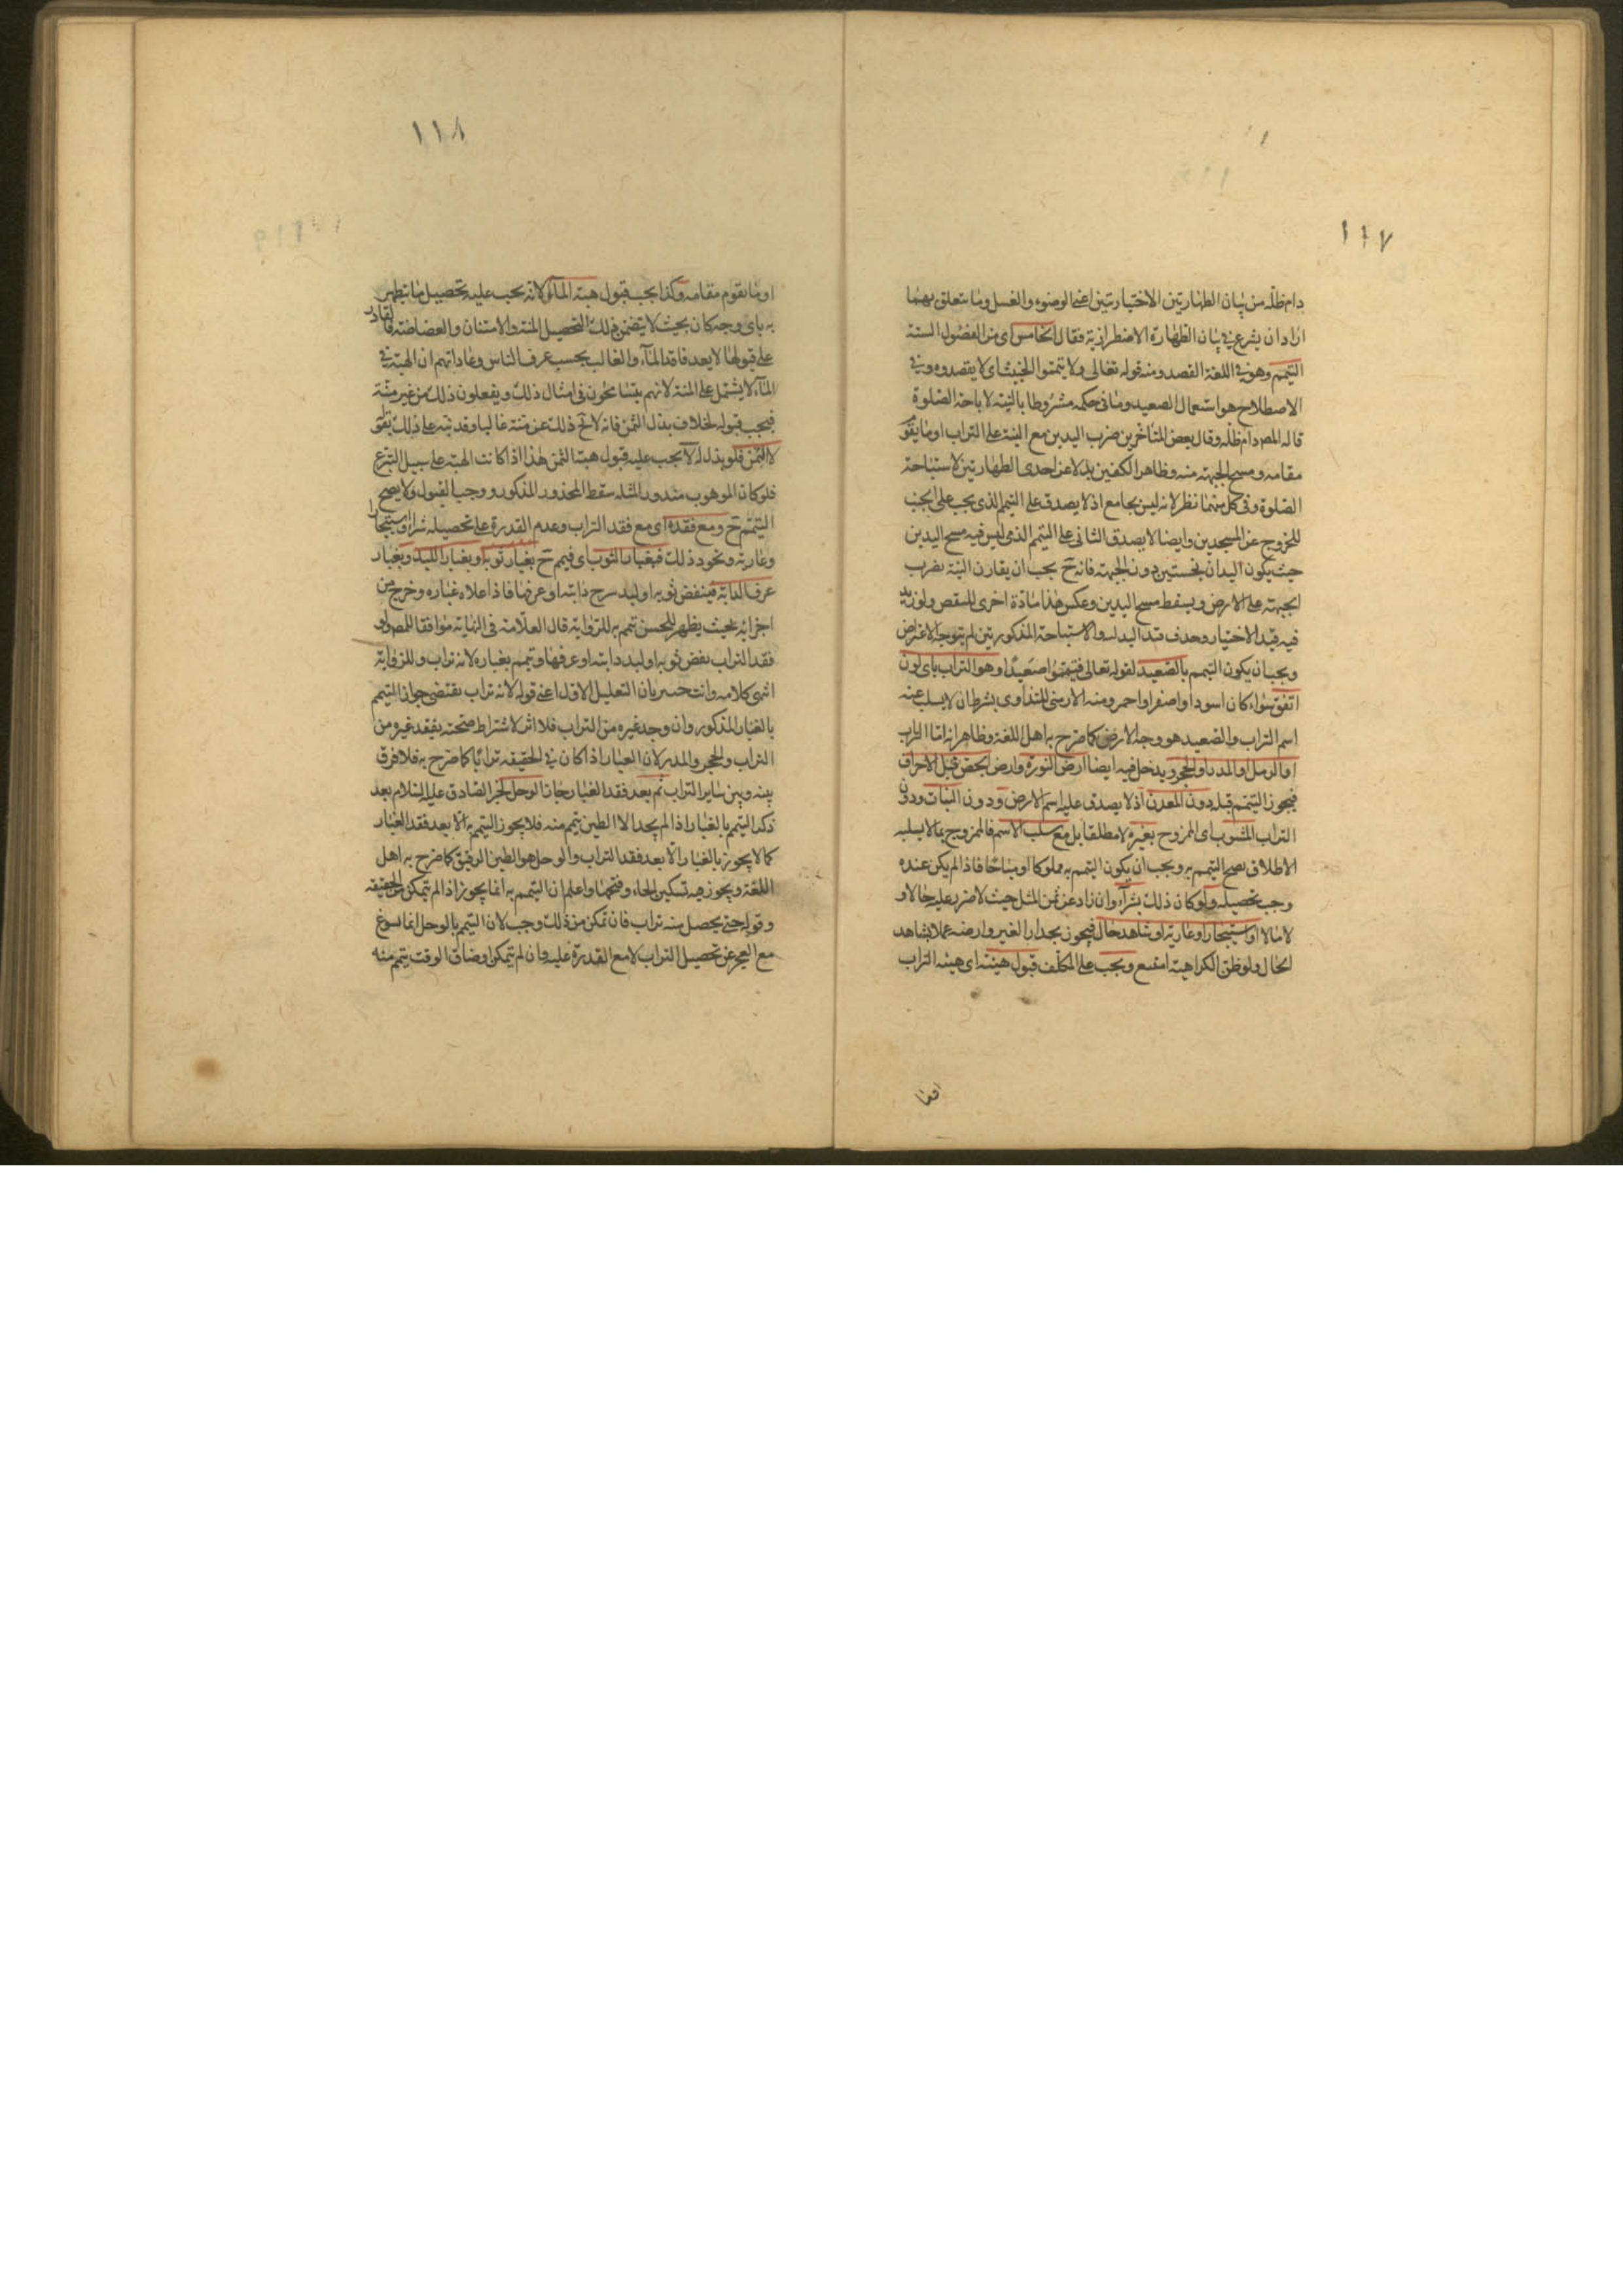 ١١٧
دام ظله من بيان الطهارتين الاختياريتين اعنى الوضوء والغسل وما يتعلق بهما
اراد ان يشرع فى بيان الطهارة الاضطرارية فقال الخامس اى من الفصول الستة
التيمم وهو فى اللغة القصد ومنه قوله تعالى ولا تيمموا الخبيث اى لا يقصدوه وفى
الاصطلاح هو استعمال الصعيد وما فى حكمه مشروطا بالنية لاباحة الصلوة
قاله المصـ دام ظله وقال بعض المتاخرين ضرب اليدين مع النية على التراب او ما يقو
مقامه ومسح الجبهة منه وظاهر الكفين بدلا عن احدى الطهارتين لاستباحة
الصلوة وفى كل منهما نظر لانه ليس بجامع اذ لا يصدق على التيمم الذى يجب على الجنب
للخروج عن المسجدين وايضا لا يصدق الثانى على التيمم الذى ليس فيه مسح اليدين
حيث يكون اليدان نجستين دون الجبهة فانه ح يجب ان يقارن النية بضرب
الجبهة على الارض ويسقط مسح اليدين وعكس هذا مادة اخرى للنقض ولو زيد
فيه قيد الاختيار وحذف قيد البدلية والاستباحة المذكورتين لم يتوجه الاعتراض
ويجب ان يكون التيمم بالصعيد لقوله تعالى فتيمموا صعيدا وهو التراب باى لون
اتفق سواء كان اسود او اصفر او احمر ومنه الارمنى للتداوى بشرط ان لا يسلب عنه
اسم التراب والصعيد هو وجه الارض كما صرح به اهل اللغة وظاهر انه اما التراب
او الرمل او المدر او الحجر ويدخل فيه ايضا ارض النورة وارض الجص قبل الاحراق
فيجوز التيمم قبله دون المعدن اذ لا يصدق عليه اسم الارض ودون النبات ودون
التراب المشوب اى الممزوج بغيره لا مطلقا بل مع سلب الاسم فالممزوج بما لا يسلبه
الاطلاق يصح التيمم به ويجب ان يكون التيمم به مملوكا او مباحا فاذا لم يكن عنده
وجب تحصيله ولو كان ذلك بشراء وان زاد عن ثمن المثل حيث لا ضرر عليه حالا و
لا مالا او استيجار او عارية او شاهد حال فيجوز بجدار الغير وارضه عملا بشاهد
الحال ولو ظن الكراهية امتنع ويجب على المكلف قبول هبته اى هبة التراب
١١٨
او ما يقوم مقامه وكذا يجب قبول هبة الماء لانه يجب عليه تحصيل ما يتطهر
به باى وجه كان بحيث لا يتضمن ذلك التحصيل المنة والامتنان والغضاضة فالقادر
على قبولها لا يعد فاقد الماء والغالب بحسب عرف الناس وعاداتهم ان الهبة فى
الماء لا يشتمل على المنة لانهم يتسامحون فى امثال ذلك ويفعلون ذلك من غير منة
فيجب قبوله بخلاف بذل الثمن فانه لا يخ ذلك عن منة غالبا وقد نبه على ذلك بقو
لا الثمن فلو بذل له لا يجب عليه قبول هبة الثمن هذا اذا كانت الهبة على سبيل التبرع
فلو كان الموهوب منذورا لمثله سقط المحذور المذكور ووجب القبول ولا يصح
التيمم ح ومع فقده اى مع فقد التراب وعدم القدرة على تحصيله شراء واستيجارا
وعارية ونحو ذلك فبغبار الثوب اى فيمم ح بغبار ثوبه او بغبار اللبد وبغبار
عرف الدابة فينفض ثوبه او لبد سرج دابته او عرفها فاذا علاه غباره وخرج من
اجزائه بحيث يظهر للحس تيمم به للرواية قال العلامة فى النهاية موافقا للمصـ ولو
فقد التراب نفض ثوبه او لبد دابته او عرفها وتيمم بغباره لانه تراب وللرواية
انتهى كلامه وانت خبير بان التعليل الاول اعنى قوله لانه تراب يقتضى جواز التيمم
بالغبار المذكور وان وجد غيره من التراب فلا اثر لاشتراط صحته بفقد غيره من
التراب والحجر والمدر لان الغبار اذا كان فى الحقيقه ترابا كما صرح به فلا فرق
بينه وبين ساير التراب ثم بعد فقد الغبار جاز بالوحل لخبر الصادق عليه السلام بعد
ذكر التيمم بالغبار اذا لم يجد الا الطين يتيمم منه فلا يجوز التيمم به الا بعد فقد الغبار
كما لا يجوز بالغبار الا بعد فقد التراب والوحل هو الطين الرقيق كما صرح به اهل
اللغة ويجوز فيه تسكين الحاء وفتحها واعلم ان التيمم به انما يجوز اذا لم يتمكن من تجفيفه
حتى يحصل منه تراب فان تمكن من ذلك وجب لان التيمم بالوحل انما يسوغ
مع العجز عن تحصيل التراب لا مع القدرة عليه وان لم يتمكن او ضاق الوقت يتيمم منه